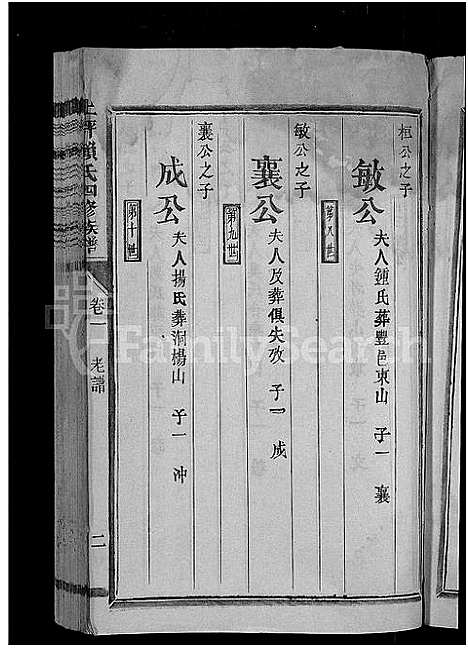 桓公之子
敏公 夫人鍾氏葬豐邑東山 子一 襄
第八世
敏公之子
襄公 夫人及葬俱失攷 子一 成
第九世
襄公之子
成公 夫人揚氏葬洞楊山 子一 沖
第十世
上坪賴氏四修族譜
卷一
老譜
二
FamilySearch